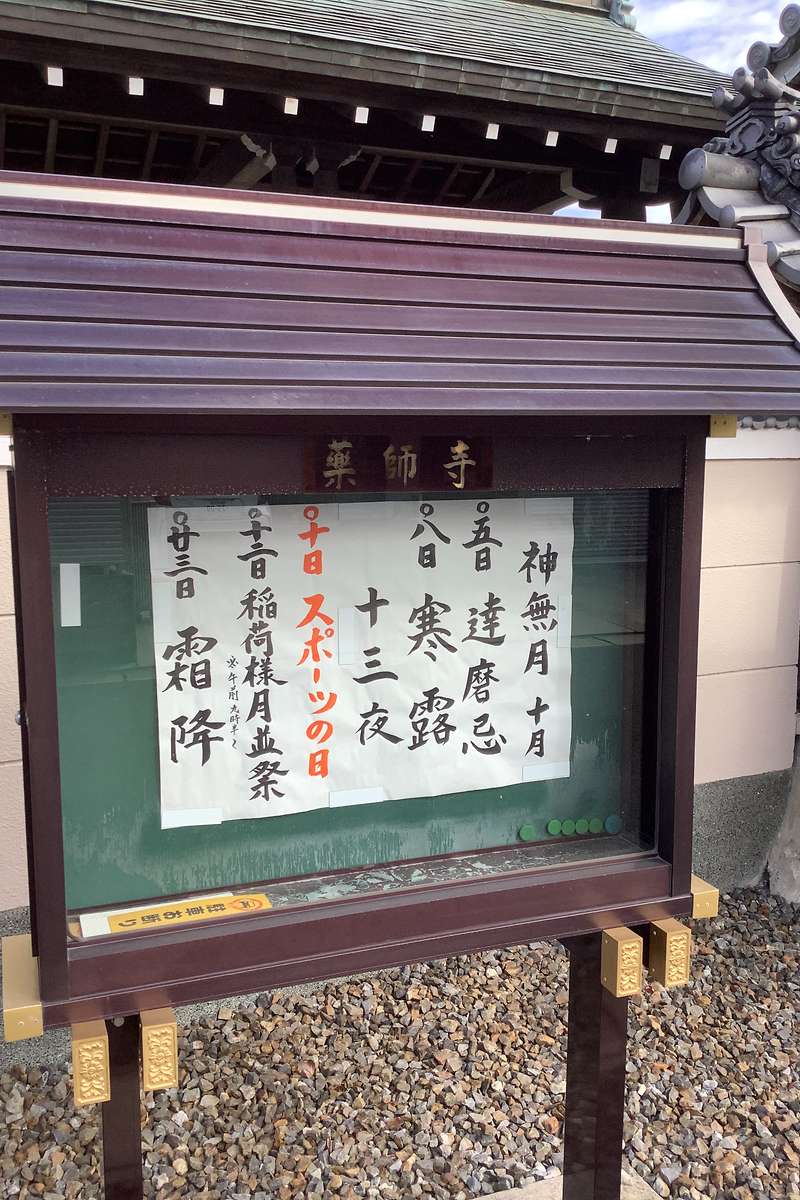 薬師寺
神無月 十月
○五日 達磨忌
○八日 寒露
十三夜
○十日 スポーツの日
○十二日 稲荷様月並祭
午前九時半〜
○廿三日 霜降
駐車お断り